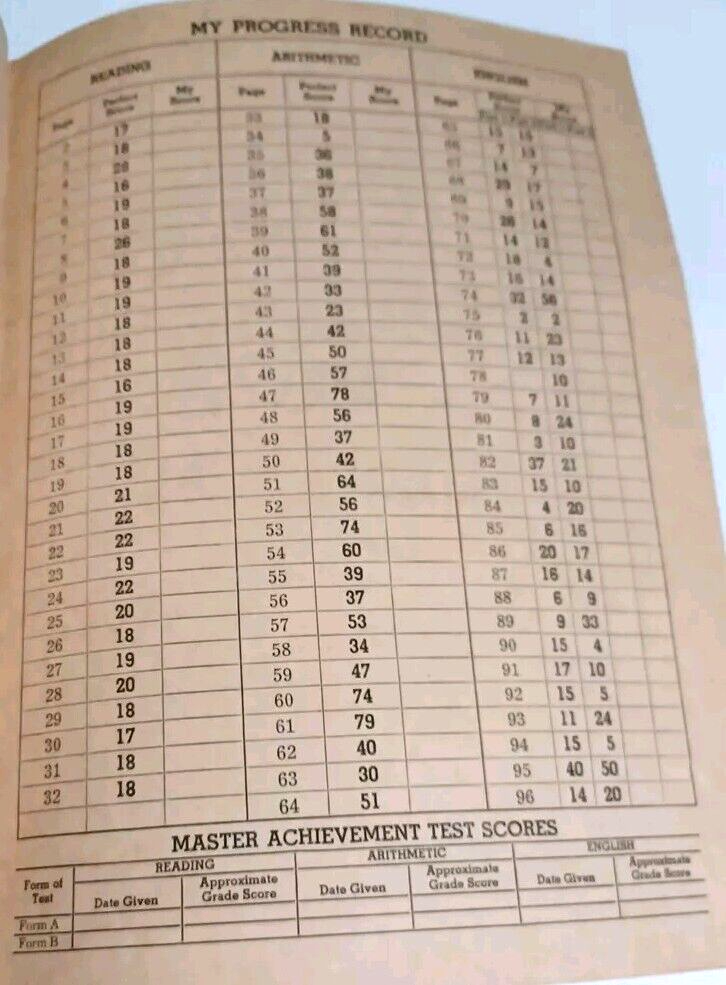 MY PROGRESS RECORD
READING ARITHMETIC ENGLISH
Page Perfect Score My Score Page Perfect Score My Score Page Perfect Score My Score
2 17 33 18 65 15
3 18 34 5 66 7 13
4 35 36 67 14 7
5 16 36 38 68 17
6 19 37 37 69 9 15
7 18 38 58 70 28 14
8 26 39 61 71 14 12
9 18 40 52 72 18 4
10 19 41 39 73 16 14
11 19 42 33 74 32 56
12 18 43 23 75 2 2
13 18 44 42 76 11 23
14 18 45 50 77 12 13
15 16 46 57 78 10
16 19 47 78 79 7 11
17 19 48 56 80 8 24
18 18 49 37 81 3 10
19 18 50 42 82 37 21
20 21 51 64 83 15 10
21 22 52 56 84 4 20
22 22 53 74 85 6 16
23 19 54 60 86 20 17
24 22 55 39 87 16 14
25 20 56 37 88 6 9
26 18 57 53 89 9 33
27 19 58 34 90 15 4
28 20 59 47 91 17 10
29 18 60 74 92 15 5
30 17 61 79 93 11 24
31 18 62 40 94 15 5
32 18 63 30 95 40 50
64 51 96 14 20
MASTER ACHIEVEMENT TEST SCORES
READING ARITHMETIC ENGLISH
Form of Test Date Given Approximate Grade Score Date Given Approximate Grade Score Date Given Approximate Grade Score
Form A
Form B